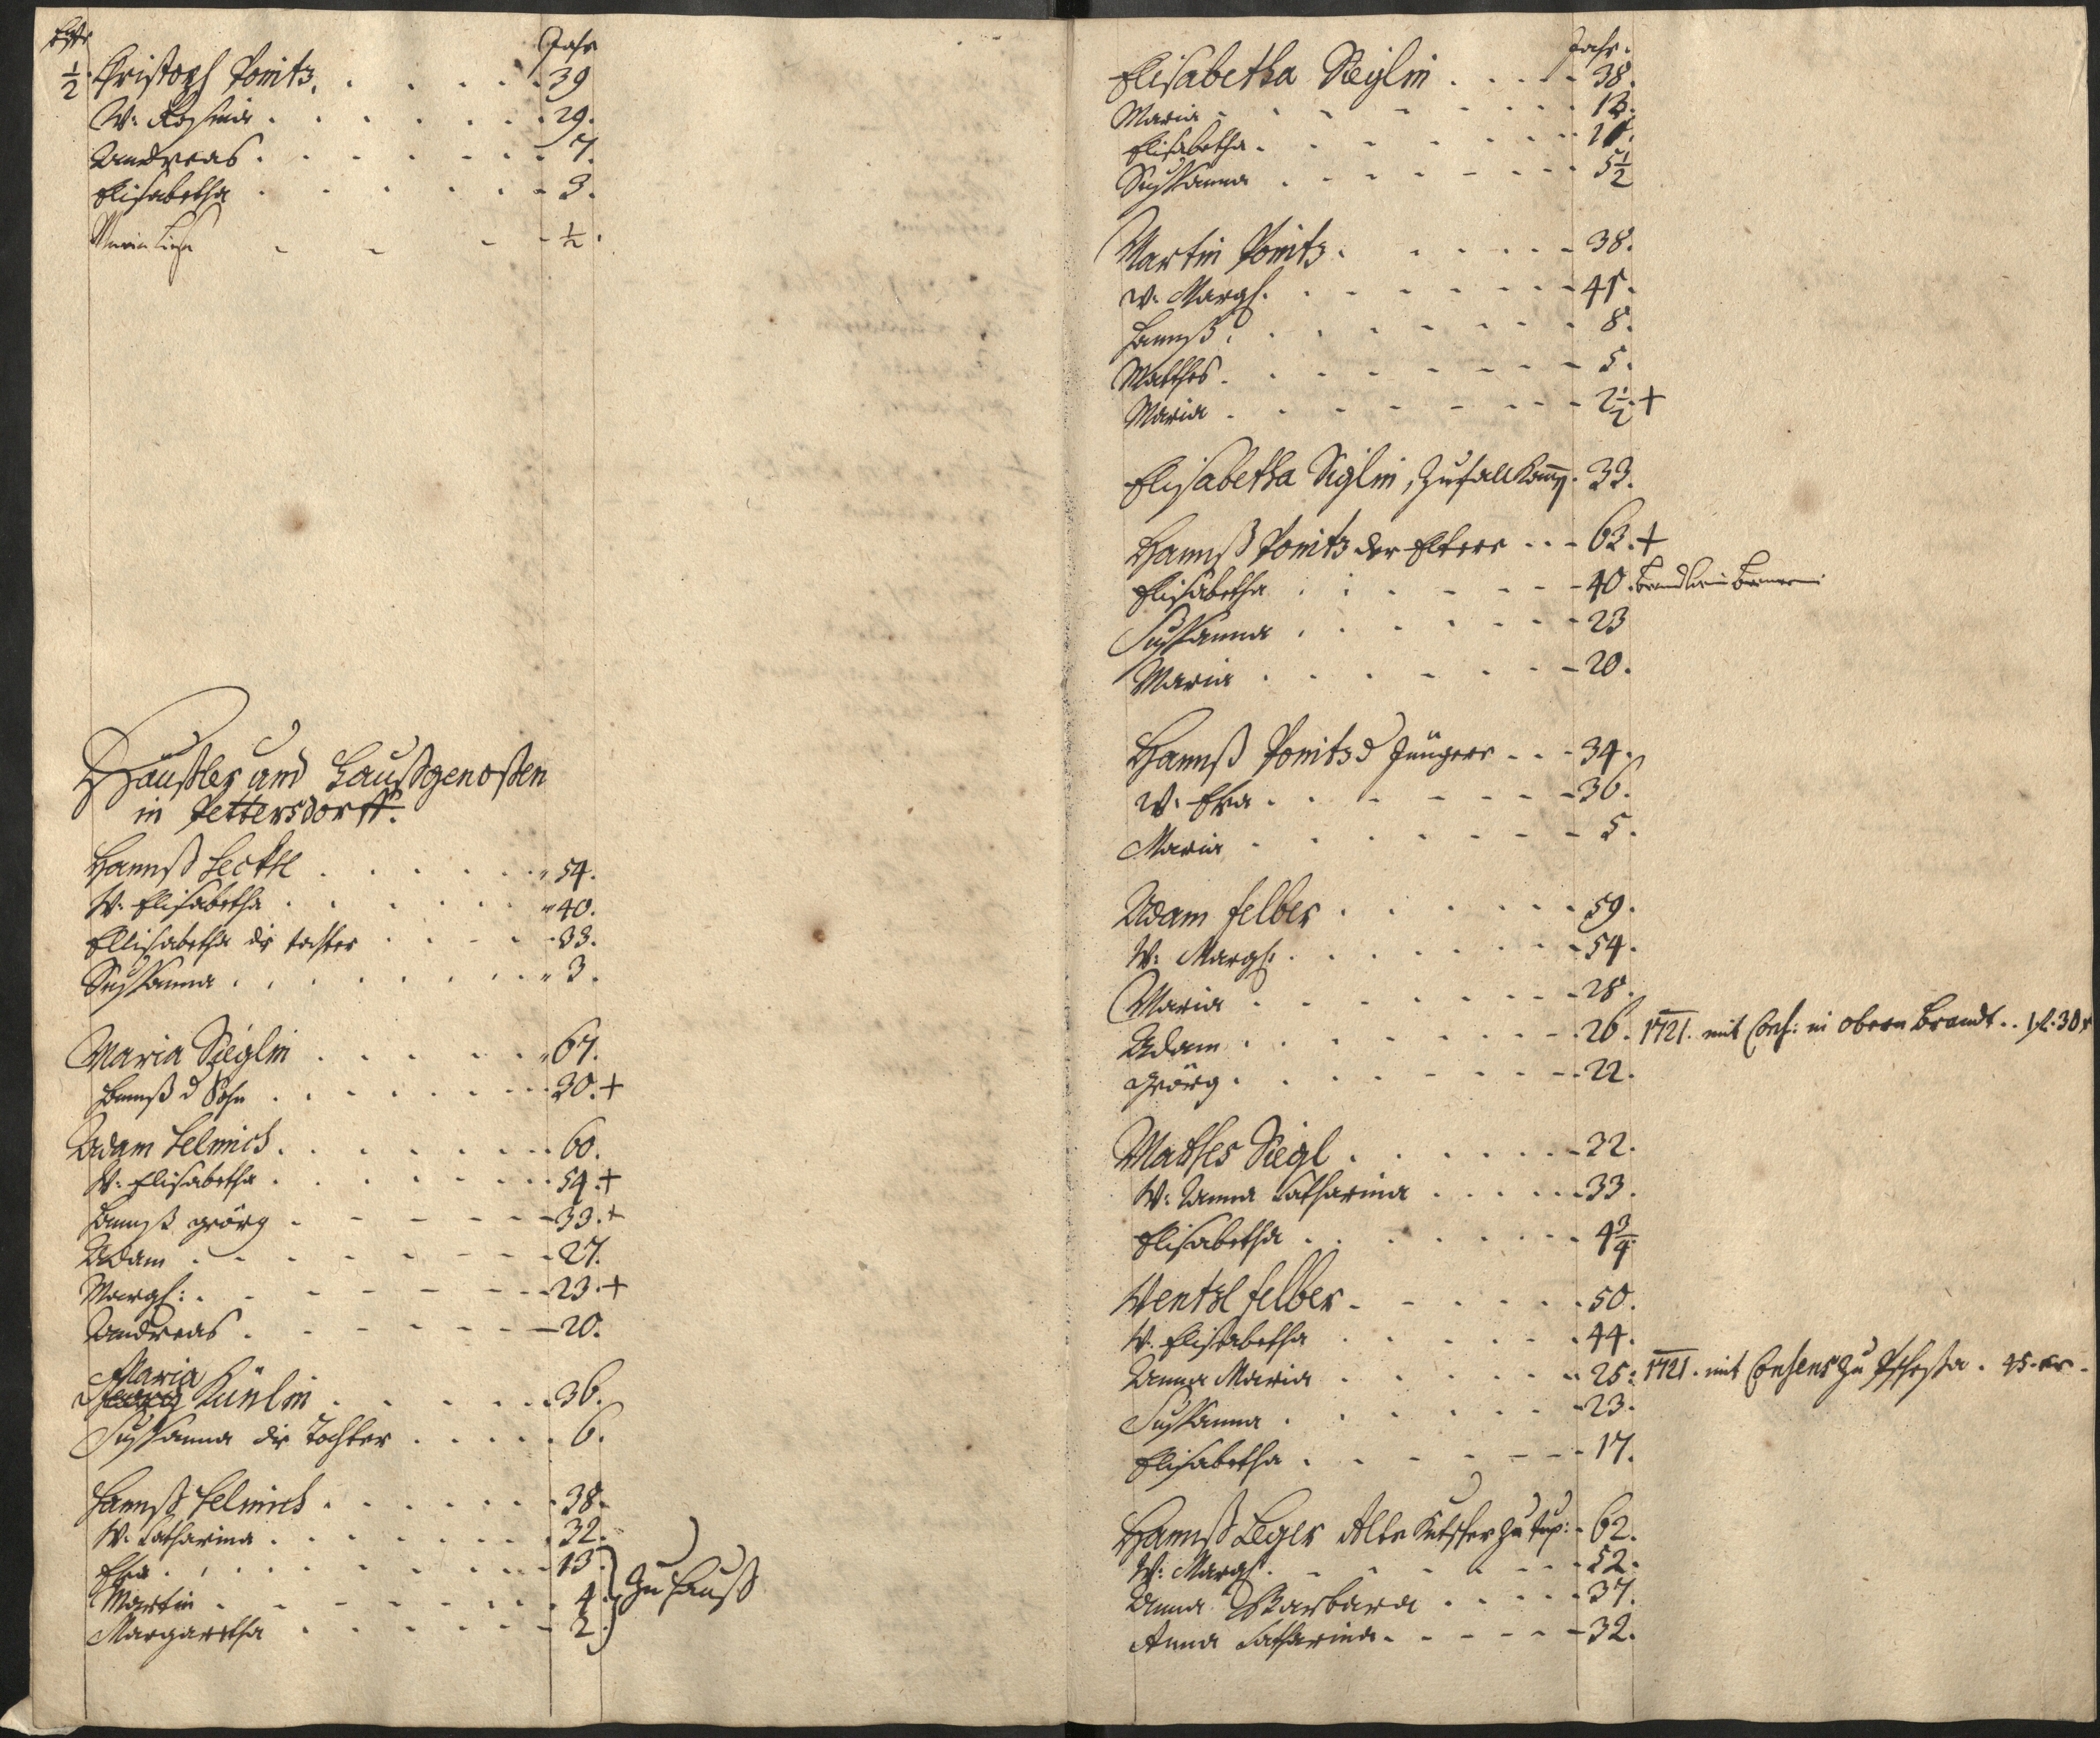 Jahr
½. Christoph Ponitz. . . . . 39
W: Rosina . . . . . . 29.
Andreas . . . . . . 7.
Elisabetha . . . . . . 3.
Maria Lisa - - - - ½.
Häußler und Haußgenoßen
in Pettersdorff.
Hannß Heckl . . . . . . 54.
W: Elisabetha . . . . . . 40.
Ellisabetha die tochter . . . . 33.
Sußanna . . . . . . . 3.
Maria Sieglin . . . . . 67.
Hannß d Sohn . . . . . . 30. +
Adam Helmich . . . . . . 60.
W: Elisabetha . . . . . . 54. +
Hannß Geörg . - - - - 33. +
Adam . . . . . . . 27.
Margh: . - - - - - 23. +
Andreas . - - - - - 20.
Maria
Künlin . . . . . 36.
Sußanna die Tochter . . . . . 6.
Hannß Helmich . . . . . . 38.
W: Catharina . . . . . . 32.
Eva . . . . . . . . 13.
Martin . - - - - - 4. Zu Hauß
Margaretha . . . . . . 2.
Jahr.
Elisabetha Sieglin . . . . 38.
Maria - - - - - - 13.
Elisabetha . . . . . . 11.
Sußanna . . . . . . 5½
Martin Ponitz . . . . . 38.
W: Margh. . . . . . . 45.
Hannß . . . . . . . 8.
Matthes . . . . . . . 5.
Maria . . . . . . . 2½. +
Elisabetha Siglin, 33.
Hannß Ponitz der Eltere . . . 63. +
Elisabetha . . . . . . 40.
Sußanna . . . . . . 23
Maria . . . . . . 20.
Hannß Ponitz d Jüngere . . . 34.
W: Eva . . . . . . 36.
Maria . . . . . . 5.
Adam Felber . . . . . . 59.
W: Margh: . . . . . . 54.
Maria . . . . . . . 28.
Adam . . . . . . . 26. 1721. mit Cons: in obern Brandt . . 1 fl. 30 x
Geörg . . . . . . . 22.
Mathes Siegl . . . . . . 22.
W: Anna Catharina . . . . . 33.
Elisabetha . . . . . . . 4¾
Wentzl Felber . . . . . . 50.
W: Elisabetha . . . . . . 44.
Anna Maria . . . . . . 25. 1721. mit Consens zu . 45 xr.
Sußanna . . . . . . . 23.
Elisabetha . . . . . . 17.
Hannß Leger Alte Kutscher zu 62.
W: Margh: . . . . . . 52.
Anna Barbara . . . . . 37.
Anna Catharina . . . . . 32.